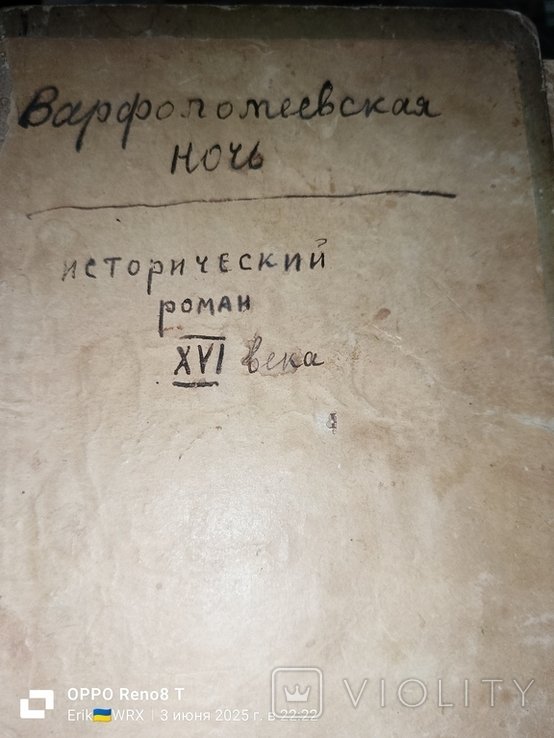 Варфоломеевская
ночь
исторический
роман
XVI века
OPPO Reno8 T
Erik🇺🇦WRX | 3 июня 2025 г. в 22:22
VIOLITY